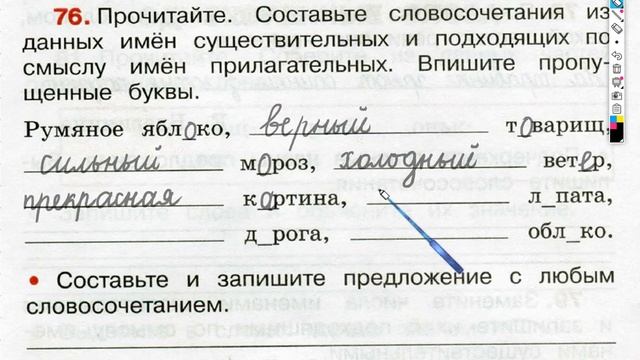 76. Прочитайте. Составьте словосочетания из
данных имён существительных и подходящих по
смыслу имён прилагательных. Впишите пропу-
щенные буквы.
Румяное яблоко, верный товарищ,
сильный мороз, холодный ветер,
прекрасная картина, л_пата,
д_рога, обл_ко.
• Составьте и запишите предложение с любым
словосочетанием.